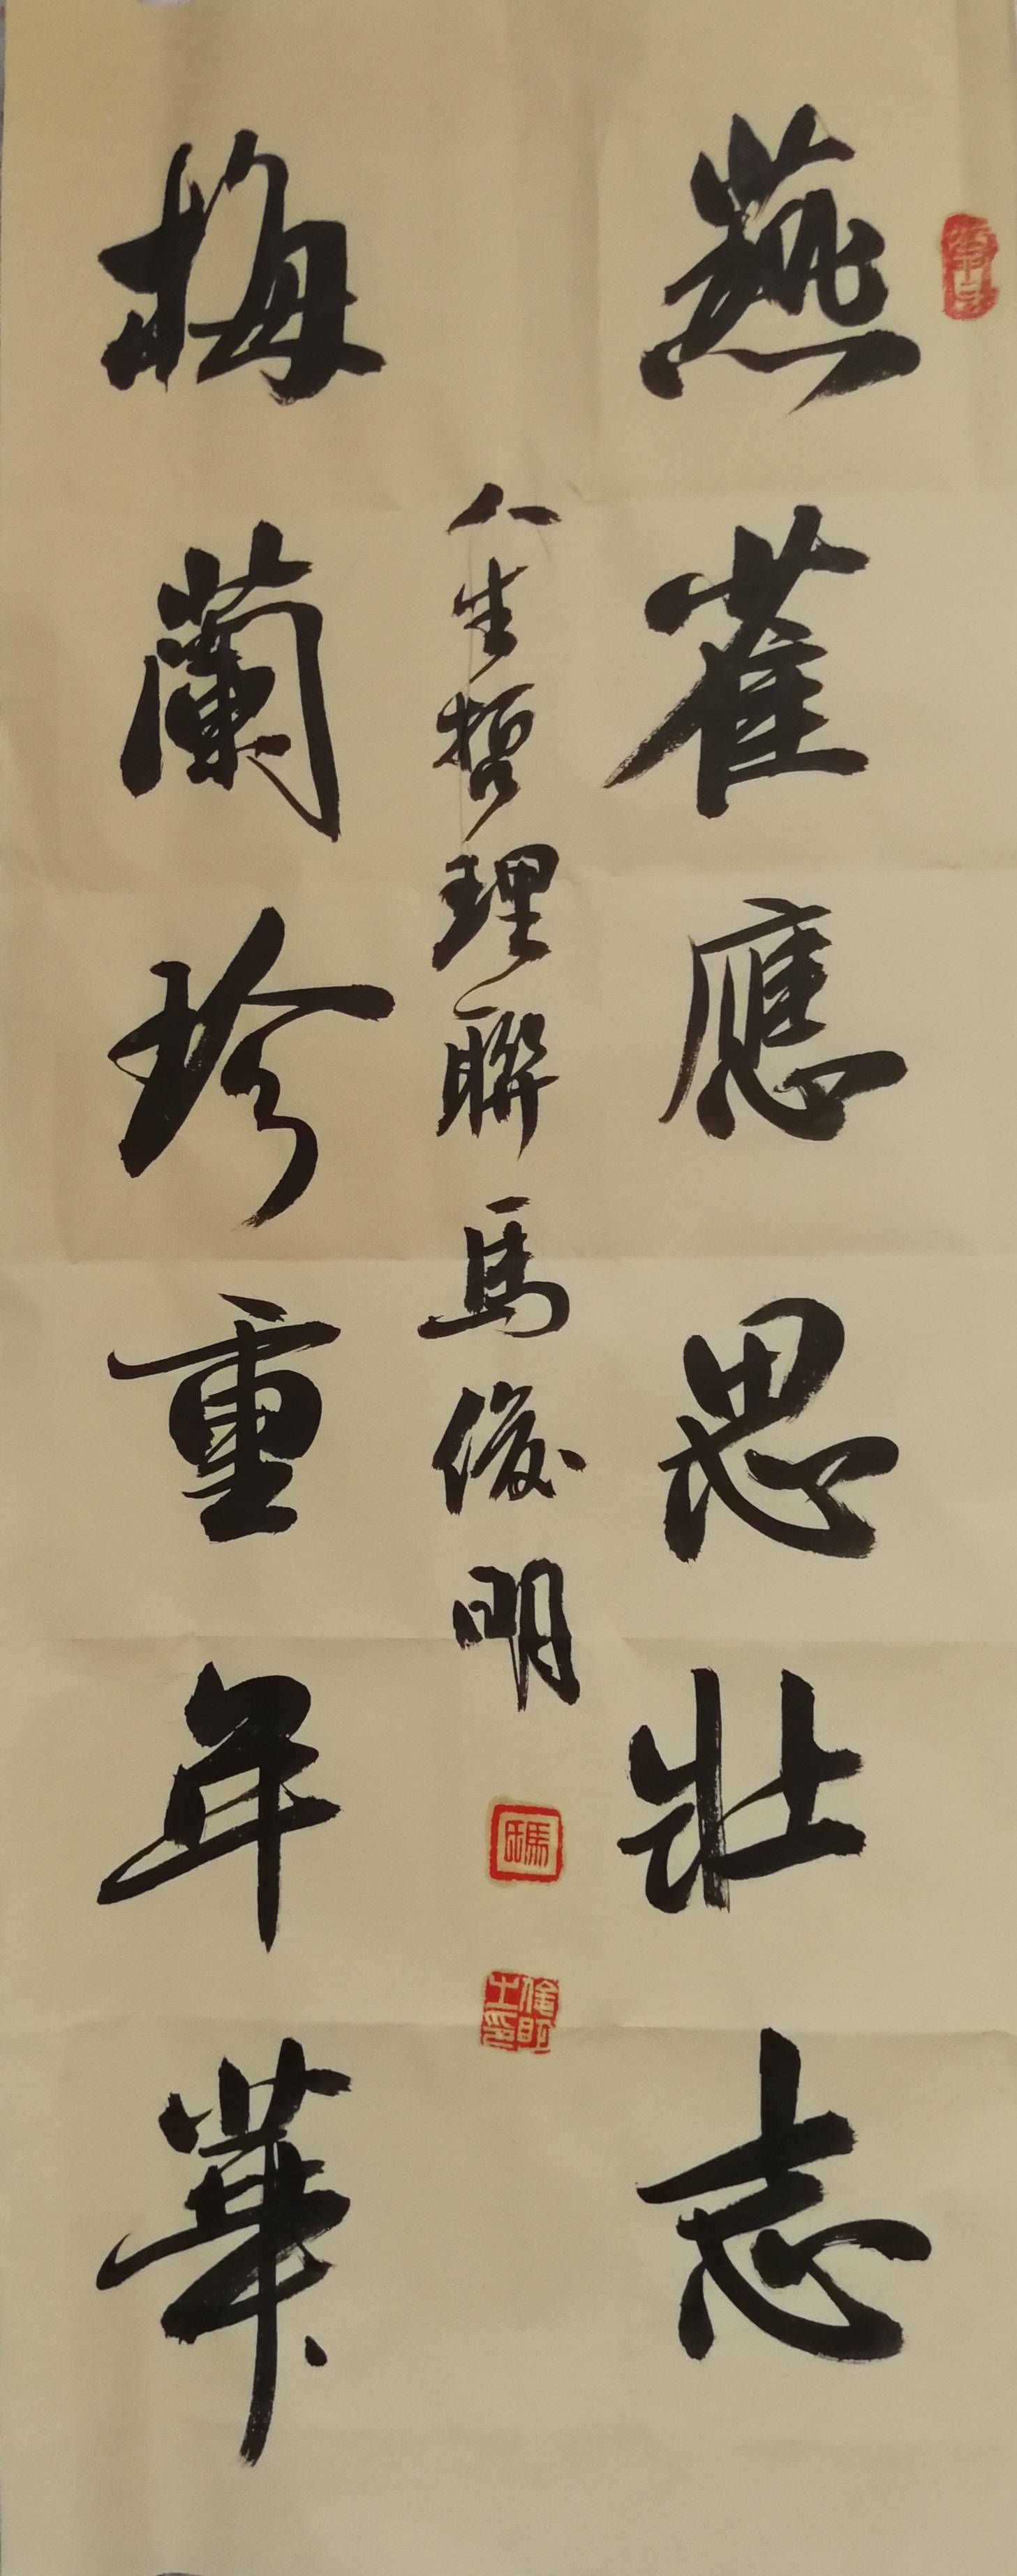 燕雀應思壯志
梅蘭珍重年華
人生哲理聯 馬俊明
俊明之印